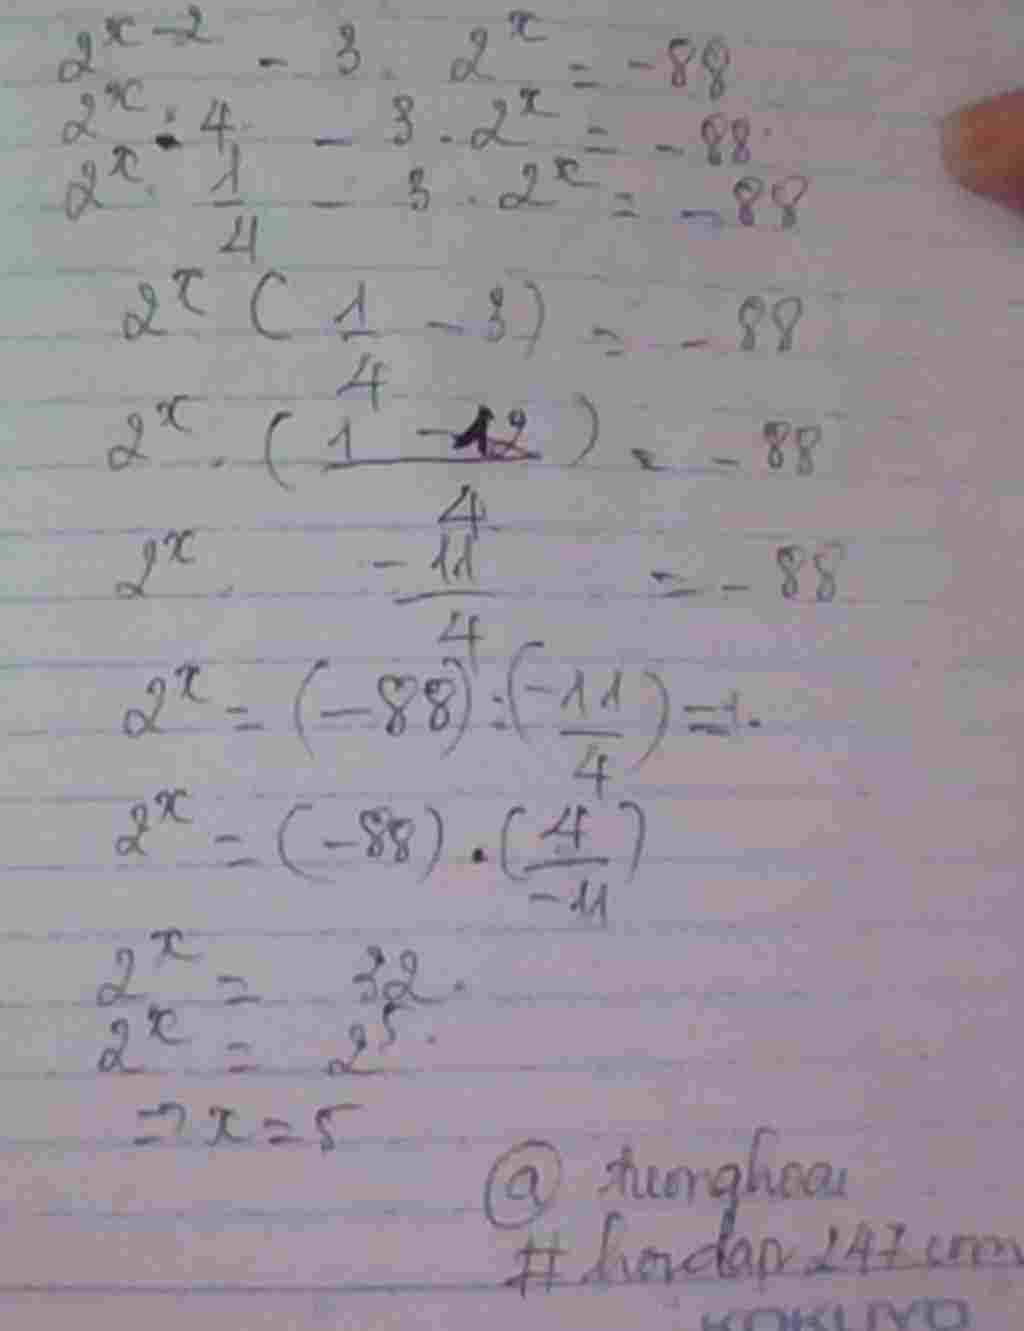 2^{x-2} - 3 . 2^x = -88
2^x : 4 - 3 . 2^x = -88
2^x . \frac{1}{4} - 3 . 2^x = -88
2^x ( \frac{1}{4} - 3 ) = -88
2^x . ( \frac{1-12}{4} ) = -88
2^x . \frac{-11}{4} = -88
2^x = (-88) : ( \frac{-11}{4} )
2^x = (-88) . ( \frac{4}{-11} )
2^x = 32
2^x = 2^5
=> x = 5
@ tuonghoai
# hoidap247.com
KOKUYO